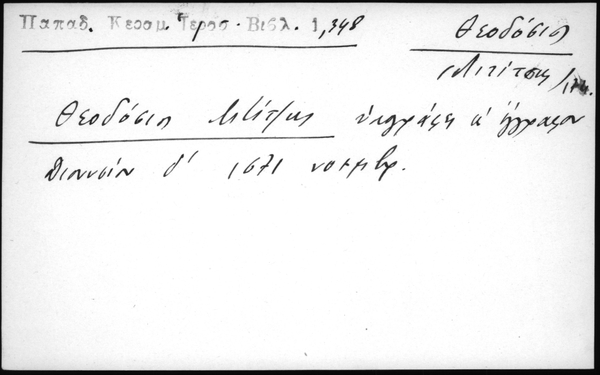 Παπαδ. Κεραμ. Ἱερος. Βιβλ. 1,348
Θεοδόσιος
Θεοδόσιος ὑπογράφει εἰς ἔγγραφον
Διονυσίου δ' 1671 νοεμβρ.